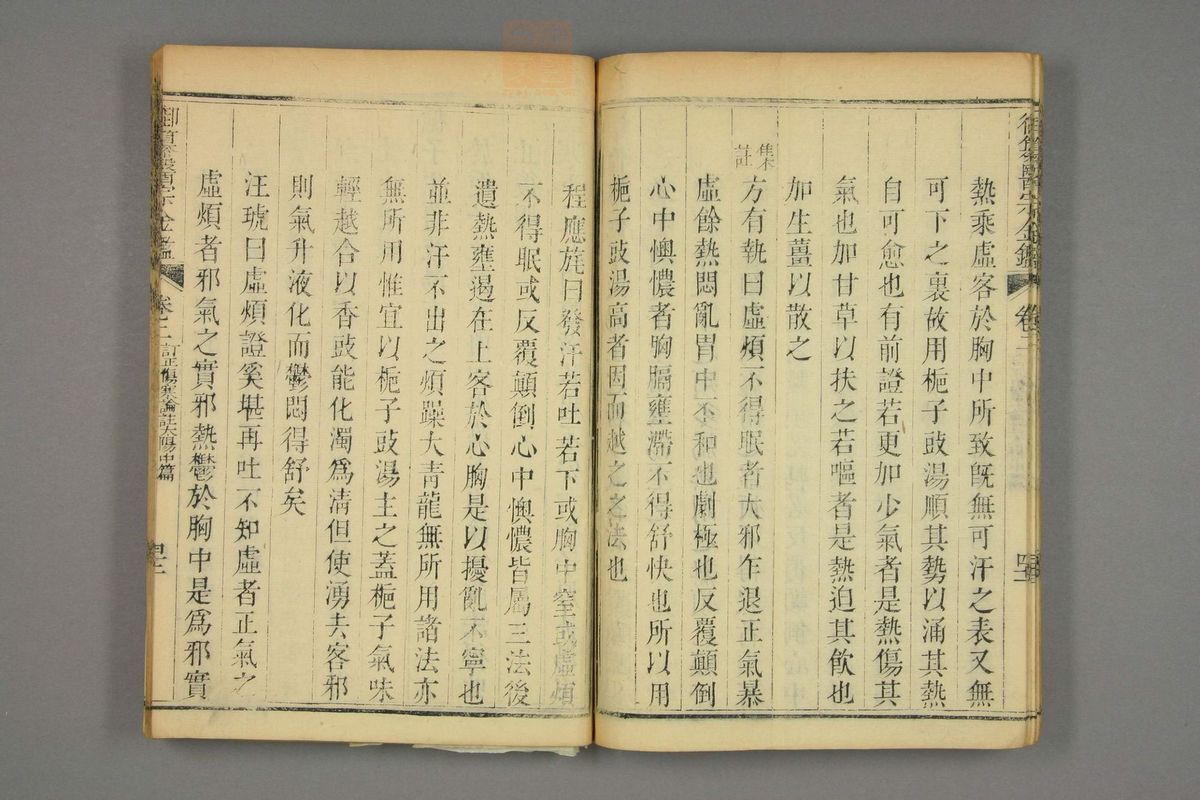 熱乘虛客於胸中所致旣無可汗之表又無
可下之裏故用梔子豉湯順其勢以涌其熱
自可愈也有前證若更加少氣者是熱傷其
氣也加甘草以扶之若嘔者是熱迫其飲也
加生薑以散之
集註
方有執曰虛煩不得眠者大邪乍退正氣暴
虛餘熱悶亂胃中不和也劇極也反覆顛倒
心中懊憹者胸膈壅滯不得舒快也所以用
梔子豉湯高者因而越之之法也
程應旄曰發汗若吐若下或胸中窒或虛煩
不得眠或反覆顛倒心中懊憹皆屬三法後
遺熱壅遏在上客於心胸是以擾亂不寧也
並非汗不出之煩躁大青龍無所用諸法亦
無所用惟宜以梔子豉湯主之蓋梔子氣味
輕越合以香豉能化濁爲清但使湧去客邪
則氣升液化而鬱悶得舒矣
汪琥曰虛煩證奚堪再吐不知虛者正氣之
虛煩者邪氣之實邪熱鬱於胸中是爲邪實
御纂醫宗金鑑
卷二
訂正傷寒論註太陽中篇